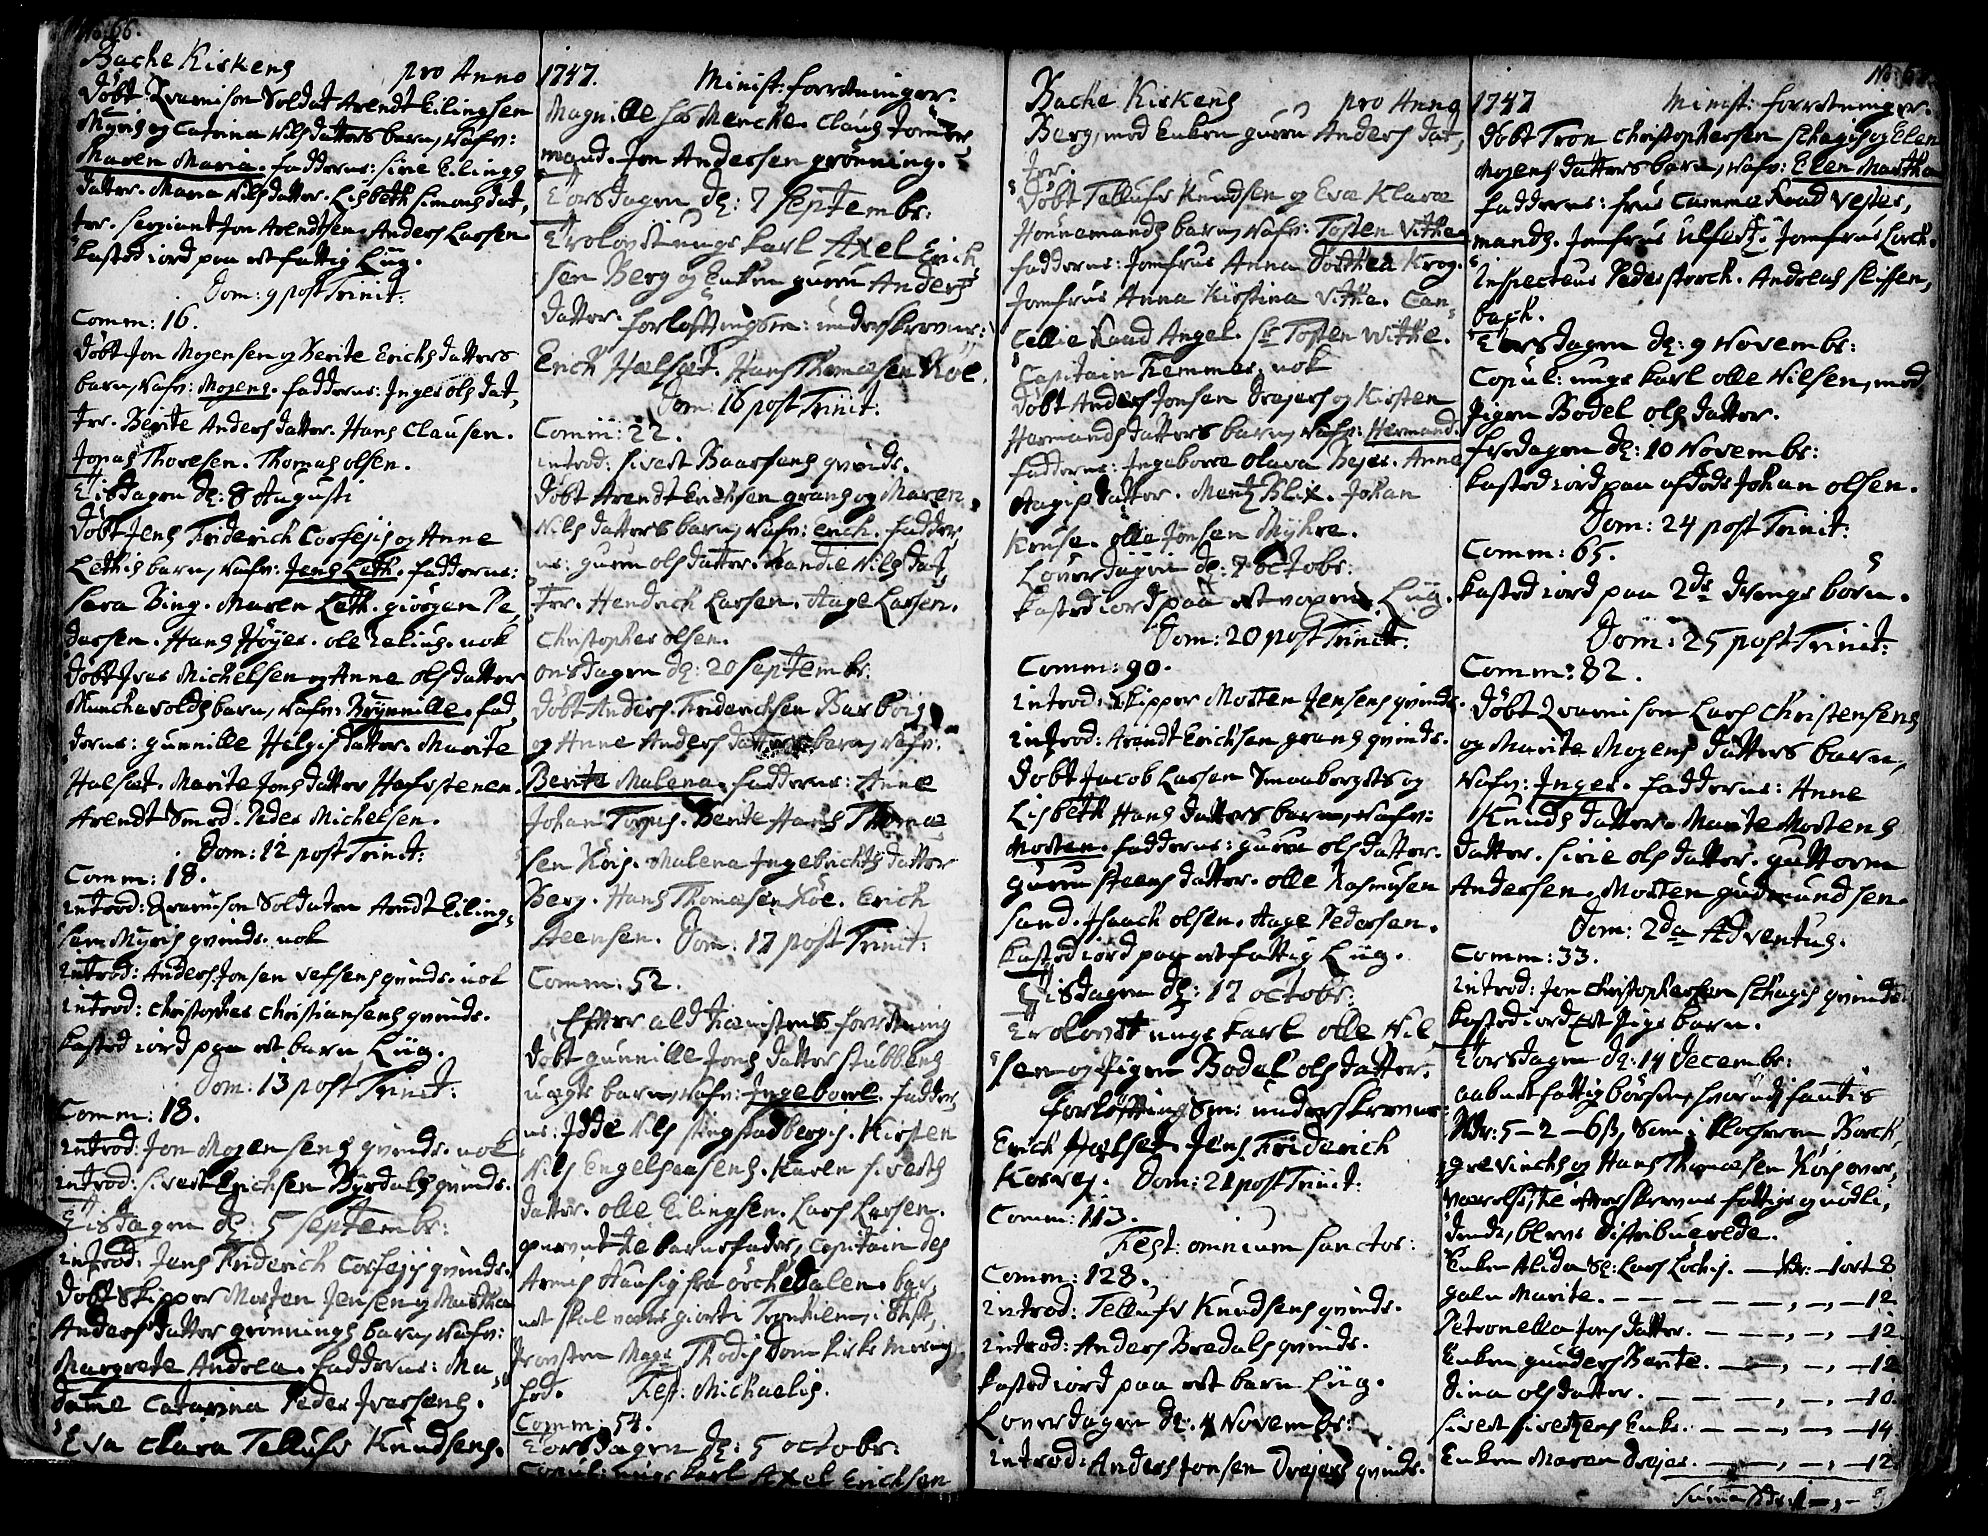 No: 66.
Bache Kirkens pro Anno
Døbt Qvarnison Soldat Arendt Eilingsen
Myris og Catrina Nilsdatters barn, Nafn:
Maren Maria. fadderne: Sirie Eilings
datter. Maria Nilsdatter. Lisbeth Simonsdat,
ter. Sergiant Jon Arendtsen. Anders Larsen
kasted iord paa et fattig Liig.
Dom: 9 post Trinit:
Comm: 16.
Døbt Jon Mogensen og Berite Erichsdatters
barn, Nafn: Mogens. fadderne: Inger olsdat,
ter. Berite Andersdatter. Hans Clausen.
Jonas Thoresen. Thomas olsen.
Tisdagen d: 8 Augusti
Døbt Jens Friderich Corfejis og Anne
Lethis barn, Nafn: Jens Leth. fadderne:
Sara Bing. Maren Leth. giørgen Pe
dersen. Hans Höyer. ole Zelius. nok
Døbt Iver Michelsen og Anne olsdatter
Munchavolds barn, Nafn: Brynnille. fad,
derne: gunnille Helgisdatter. Marite
Halset. Marite Jonsdatter Hafrstenen.
Arendt Smed. Peder Michelsen.
Dom: 12 post Trinit:
Comm: 18.
introd: Qvarnison Soldaten Arndt Eiling,
sen Myris qvinde. nok
introd: Anders Jonsen Vefsens qvinde. nok
introd: Christopher Christiansens qvinde.
kasted iord paa et barn Liig.
Dom: 13 post Trinit:
Comm: 18.
introd: Jon Mogensens qvinde. nok
introd: Sivert Erichsen Byrdals qvinde.
Tisdagen d: 5 Septembr:
introd: Jens Friderich Corfejis qvinde.
Døbt Skipper Morten Jensen og Martha
Andersdatter grønnings barn, Nafn:
Margrete Andrea. fadderne: Ma,
dame Catarina Peder Iversens.
Eva Clara Tellufs Knudsens.
1747. Minist: forretninger.
Magnille Hos Mencke. Claus Tømmer
mand. Jon Andersen grønning.
Torsdagen d: 7 Septembr:
Trolovet unge karl Axel Erich
sen Berg og Enken guru Anders
datter. forloftningsm: underskrevne:
Erich Halset. Hans Thomesen Köe.
Dom: 16 post Trinit:
Comm: 22.
introd: Sivert Baarsens qvinde.
Døbt Arendt Erichsen grans og Maren
Nilsdatters barn, Nafn: Erich. fadder,
ne: guru olsdatter. Randie Nilsdat,
ter. Hendrich Larsen. Aage Larsen.
Christopher olsen.
onsdagen d: 20 Septembr:
Døbt Anders Friderichsen Barboig
og Anne Andersdatters barn, Nafn:
Berite Malena. fadderne: Anne
Johan Torgis. Berite Hans Thome
sen Köis. Malena Ingebrichtsdatter
Berg. Hans Thomesen Köe. Erich
Steensen. Dom: 17 post Trinit:
Comm: 52.
Efter ald tienistens forretning
Døbt gunnille Jonsdatter Stubbens
uægte barn, Nafn: Ingeborre. fadder,
ne: Idde Nils Ringstadbergis. Kirsten
Nils Engelsaasens. Karen Siverts
datter. olle Eilingsen. Lars Larsen.
gervent til barnefader, Capitain des
Armis Hausig fra Örchedalen. bar,
net skal være giort i Tronhiem, i Stift,
provsten Magr Thodis Dom kirke Menig
hed. Fest: Michaelis.
Comm: 54.
Torsdagen d: 5 octobr:
Copul: unge karl Axel Erichsen
Bache Kirkens pro Anno
Berg, med Enken guru Andersdat,
ter.
Døbt Tellufs Knudsen og Eva Klara
Hønnemands barn, Nafn: Tosten Vithe
fadderne: Jomfrue Anna Dorthea Krog.
Jomfrue Anna Kirstina Vithe. Can
cellie Raad Angel. Sr Tosten Withe.
Capitain Hemmer. nok
Døbt Anders Jonsen Drejers og Kirsten
Harmandsdatters barn, Nafn: Hermand.
fadderne: Ingeborre Olava Bejer. Anne
Aagisdatter. Mentz Blix. Johan
Kruse. olle Jonsen Myhre.
Løverdagen d: 7 octobr:
kasted iord paa et voxen Liig.
Dom: 20 post Trinit:
Comm: 90.
introd: Skipper Morten Jensens qvinde.
introd: Arendt Erichsen grans qvinde.
Døbt Jacob Larsen Smaabergets og
Lisbeth Hansdatters barn, Nafn:
Morten. fadderne: guru olsdatter.
guru Steensdatter. olle Rasmusen
Sand. Isaach olsen. Aage Pedersen.
kasted iord paa et fattig Liig.
Tisdagen d: 17 octobr:
Trolovet unge karl olle Nil,
sen og Pigen Bodel olsdatter.
forløftningsm: underskrevne:
Erich Hælset. Jens Friderich
Korvej. Dom: 21 post Trinit:
Comm: 113.
Fest: omnium sanctor:
Comm: 128.
introd: Tellufs Knudsens qvinde.
introd: Anders Bredals qvinde.
kasted iord paa et barn Liig.
Løverdagen d: 4 Novembr:
introd: Anders Jonsen Drejers qvinde.
No: 67.
1747 Minist: forretninger.
Døbt Tron Christophersen Schagis og Elen
Mogensdatters barn, Nafn: Elen Martha
fadderne: frue Camme Raad Vester,
mands. Jomfrue Ulfers. Jomfrue Lorck.
Inspecteur Peder Storch. Andreas Steffen,
bach.
Torsdagen d: 9 Novembr:
Copul: unge karl olle Nilsen, med
Pigen Bodel olsdatter.
fredagen d: 10 Novembr:
kasted iord paa afdøde Johan olsen.
Dom: 24 post Trinit:
Comm: 65.
kasted iord paa 2de drenge børn.
Dom: 25 post Trinit:
Comm: 82.
Døbt Qvarnison Lars Christensens
og Marite Mogensdatters barn,
Nafn: Inger. fadderne: Anne
Knudsdatter. Marite Mortens
datter. Sirie olsdatter. guttorm
Andersen. Morten gudmundsen.
Dom: 2da Adventus.
Comm: 33.
introd: Jon Christophersen Schagis qvinde
kasted iord Et Pige barn.
Torsdagen d: 14 Decembr:
aabnet fattig børsen, hvorudj fantis
Rdr: 5 – 2 – 6 ß, som i Klockeren Borck,
grevincks og Hans Thomesen Köis over,
værelse, til efterskrevne fattige guodli,
dende, blevne distribuerede.
Enken Alida Sl: Lars Lockis. — Rdr: – 1 ort 8
gale Marite. — — — „ – „ – 12
Petronella Jonsdatter. — — „ – „ – 12
Enken gunders Berite. — „ – „ – 12
Dina olsdatter. — — — „ – „ – 10
Sivert Sivertsens Enke. — — „ – „ – 14
Enken Maren Drejer. — — „ – „ – 12